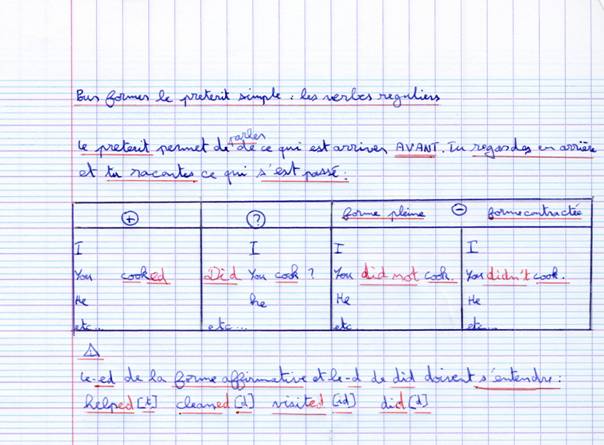 Pour former le preterit simple : les verbes reguliers
parler
Le preterit permet de de ce qui est arriver AVANT. Tu regardes en arrière
et tu racontes ce qui s'est passé :
+ ? forme pleine - forme contractée
I I I I
You cooked Did You cook ? You did not cook. You didn't cook.
He he He He
etc... etc... etc... etc...
⚠
Le -ed de la forme affirmative et le -d de did doivent s'entendre :
helped [t] cleaned [d] visited [id] did [d]